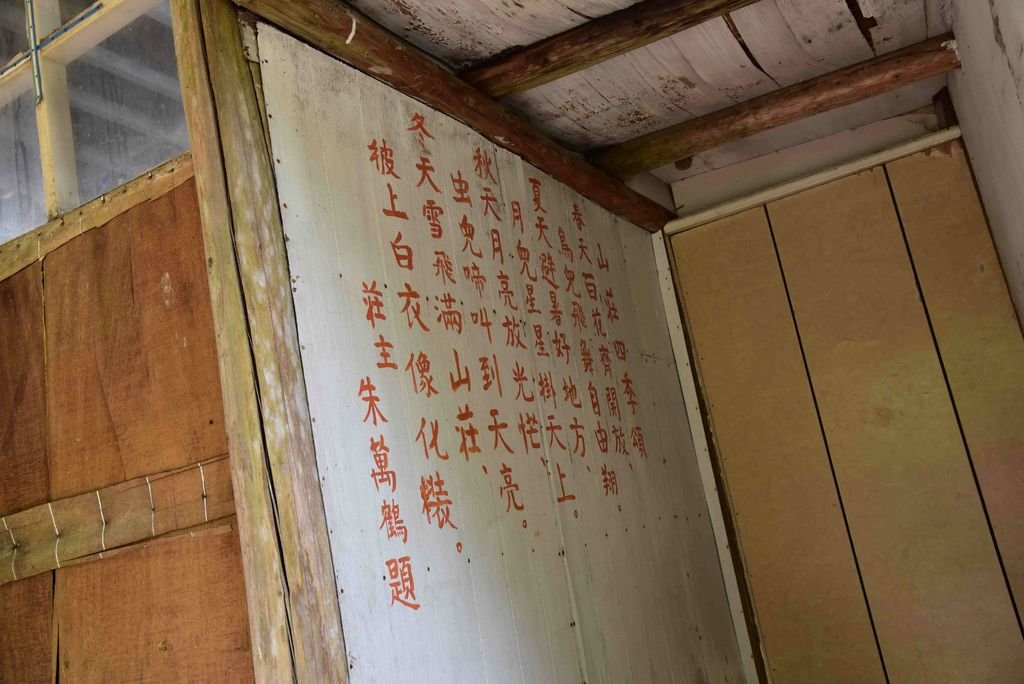 山莊四季頌
春天百花齊開放.
鳥兒飛舞自由翔.
夏天避暑好地方.
月兒星星掛天上。
秋天月亮放光恾、
虫兒啼叫到天亮。
冬天雪飛滿山莊、
披上白衣像化糚。
莊主 朱萬鶴題